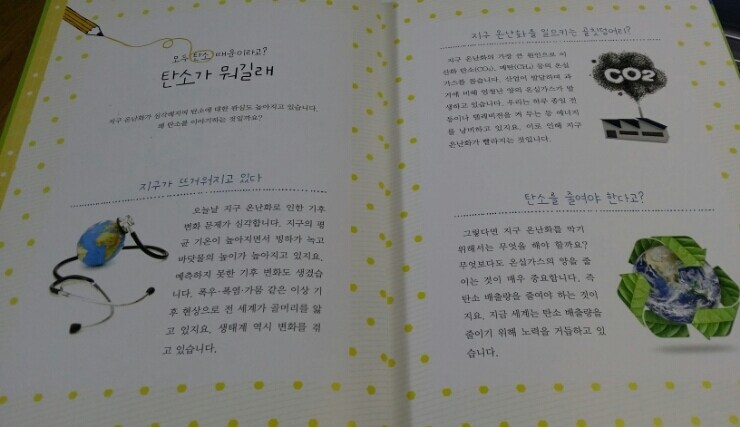 모두 탄소 때문이라고?
탄소가 뭐길래
지구 온난화가 심각해지며 탄소에 대한 관심도 높아지고 있습니다.
왜 탄소를 이야기하는 것일까요?
지구가 뜨거워지고 있다
오늘날 지구 온난화로 인한 기후
변화 문제가 심각합니다. 지구의 평
균 기온이 높아지면서 빙하가 녹고
바닷물의 높이가 높아지고 있지요.
예측하지 못한 기후 변화도 생겼습
니다. 폭우·폭염·가뭄 같은 이상 기
후 현상으로 전 세계가 골머리를 앓
고 있지요. 생태계 역시 변화를 겪
고 있습니다.
지구 온난화를 일으키는 골칫덩어리?
지구 온난화의 가장 큰 원인으로 이
산화 탄소(CO₂), 메탄(CH₄) 등의 온실
가스를 꼽습니다. 산업이 발달하며 과
거에 비해 엄청난 양의 온실가스가 발
생하고 있습니다. 우리는 하루 종일 전
등이나 텔레비전을 켜 두는 등 에너지
를 낭비하고 있지요. 이로 인해 지구
온난화가 빨라지는 것입니다.
CO2
탄소를 줄여야 한다고?
그렇다면 지구 온난화를 막기
위해서는 무엇을 해야 할까요?
무엇보다도 온실가스의 양을 줄
이는 것이 매우 중요합니다. 즉
탄소 배출량을 줄여야 하는 것이
지요. 지금 세계는 탄소 배출량을
줄이기 위해 노력을 거듭하고 있
습니다.